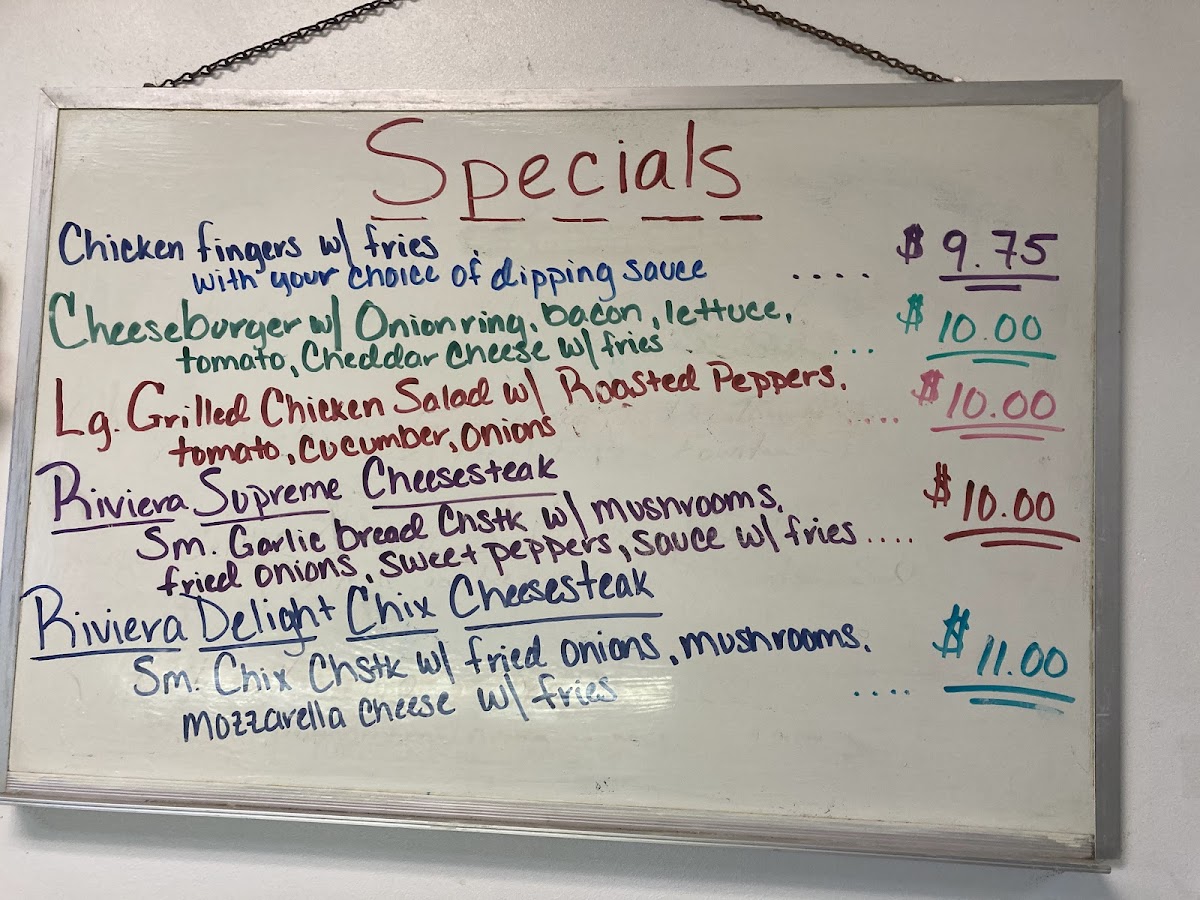 Specials
Chicken fingers w/ fries
with your choice of dipping sauce .... $ 9.75
Cheeseburger w/ Onion ring, bacon, lettuce,
tomato, Cheddar Cheese w/ fries ... $ 10.00
Lg. Grilled Chicken Salad w/ Roasted Peppers,
tomato, cucumber, onions .... $ 10.00
Riviera Supreme Cheesesteak
Sm. Garlic bread Chstk w/ mushrooms,
fried onions, sweet peppers, sauce w/ fries .... $ 10.00
Riviera Delight Chix Cheesesteak
Sm. Chix Chstk w/ fried onions, mushrooms,
mozzarella cheese w/ fries .... $ 11.00